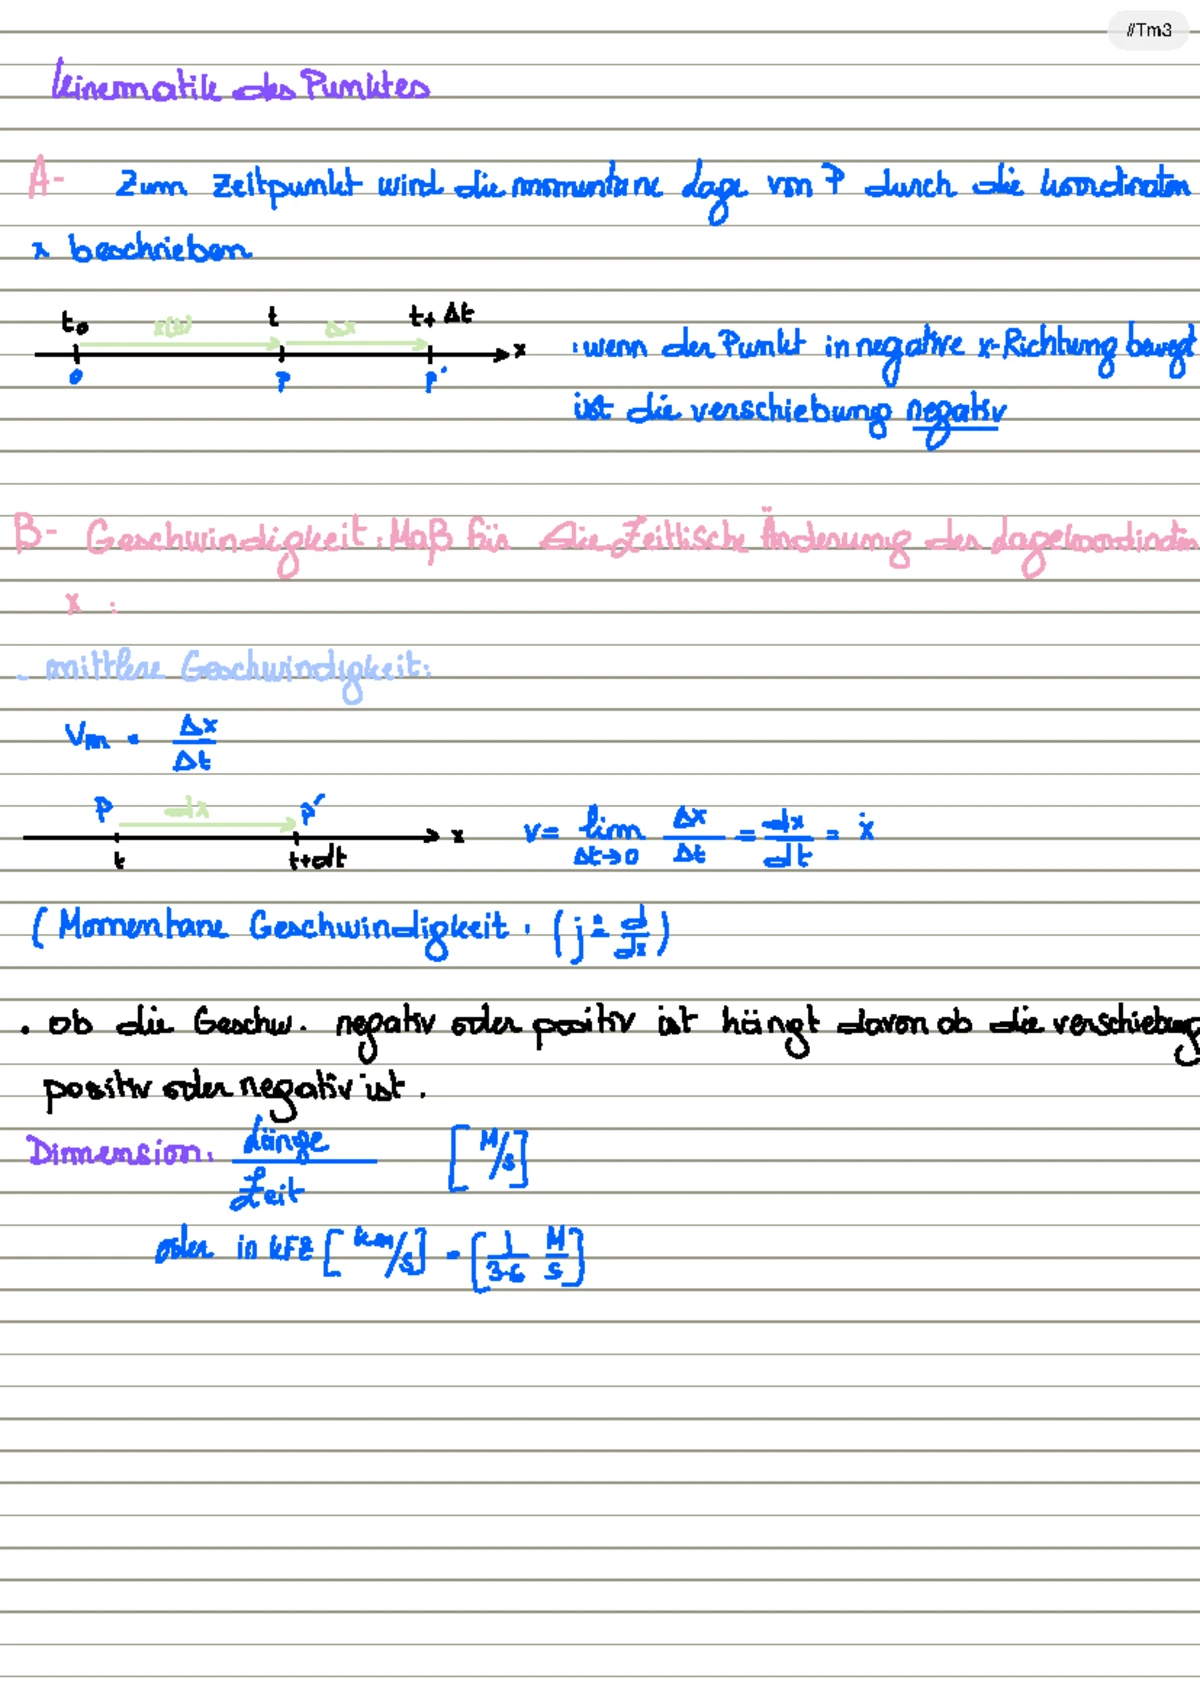 #Tm3
Kinematik des Punktes
A- Zum Zeitpunkt wird die momentane Lage von P durch die koordinaten
x beschrieben
t0 x(t) t Δx t+Δt
x
0 P P'
: wenn der Punkt in negative x-Richtung bewegt
ist die verschiebung negativ
B- Geschwindigkeit: Maß für die Zeitlische Änderung der Lagekoordinaten
x :
- mittlere Geschwindigkeit:
Vm = Δx/Δt
P dx P'
x
t t+dt
v = lim Δt→0 Δx/Δt = dx/dt = ẋ
( Momentane Geschwindigkeit. ( = d/dx )
. ob die Geschw. negativ oder positiv ist hängt davon ob die verschiebung
positiv oder negativ ist .
Dimension: Länge/Zeit [M/s]
oder in KFZ [km/s] = [1/3.6 M/s]